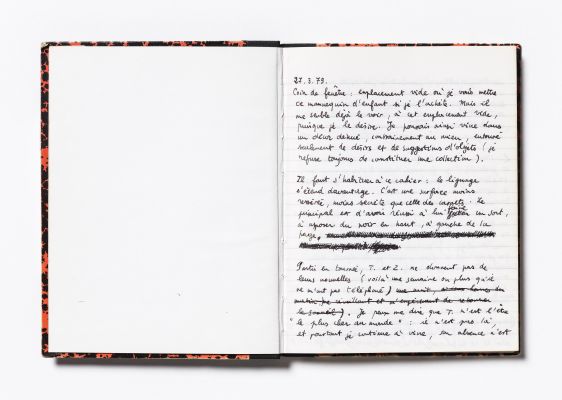 27.3.79.
Coin de fenêtre : emplacement vide où je vais mettre
ce mannequin d'enfant si je l'achète. Mais il
me semble déjà le voir, à cet emplacement vide,
puisque je le désire. Je pourrais ainsi vivre dans
un décor dénué, contrairement au mien, entouré
seulement de désirs et de suggestions d'objets (je
refuse toujours de constituer une collection).
Il faut s'habituer à ce cahier : le lignage
s'étend davantage. C'est une surface moins
resserrée, moins secrète que celle des carnets. Le
principal est d'avoir réussi à lui faire un sort,
à apposer du noir en haut, à gauche de la
page,
Partis en tournée, T. et Z. ne donnent pas de
leurs nouvelles (voilà une semaine ou plus qu'il
ne m'ont pas téléphoné)
. Je peux me dire que T. n'est l'être
"le plus cher du monde" : il n'est pas là,
et pourtant je continue à vivre, son absence n'est